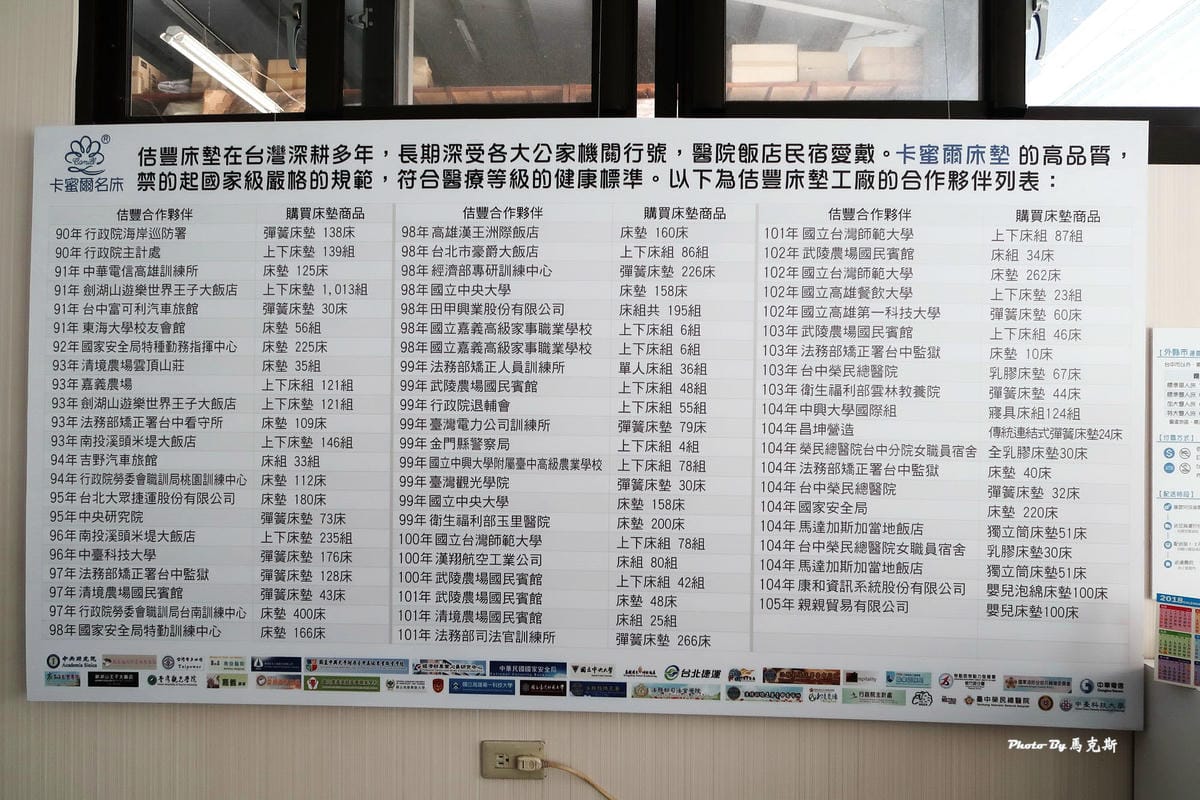 卡蜜爾名床
佶豐床墊在台灣深耕多年，長期深受各大公家機關行號，醫院飯店民宿愛戴。卡蜜爾床墊 的高品質，
禁的起國家級嚴格的規範，符合醫療等級的健康標準。以下為佶豐床墊工廠的合作夥伴列表：
佶豐合作夥伴 購買床墊商品
90年行政院海岸巡防署 彈簧床墊 138床
90年行政院主計處 上下床墊 139組
91年中華電信高雄訓練所 床墊 125床
91年劍湖山遊樂世界王子大飯店 上下床墊 1,013組
91年台中富可利汽車旅館 彈簧床墊 30床
91年東海大學校友會館 床墊 56組
92年國家安全局特種勤務指揮中心 床墊 225床
93年清境農場雲頂山莊 床墊 35組
93年嘉義農場 上下床組 121組
93年劍湖山遊樂世界王子大飯店 上下床墊 121組
93年法務部矯正署台中看守所 床墊 109床
93年南投溪頭米堤大飯店 上下床墊 146組
94年吉野汽車旅館 床組 33組
94年行政院勞委會職訓局桃園訓練中心 床墊 112床
95年台北大眾捷運股份有限公司 床墊 180床
95年中央研究院 彈簧床墊 73床
96年南投溪頭米堤大飯店 上下床墊 235組
96年中臺科技大學 彈簧床墊 176床
97年法務部矯正署台中監獄 彈簧床墊 128床
97年清境農場國民賓館 彈簧床墊 43床
97年行政院勞委會職訓局台南訓練中心 床墊 400床
98年國家安全局特勤訓練中心 床墊 166床
佶豐合作夥伴 購買床墊商品
98年高雄漢王洲際飯店 床墊 160床
98年台北市豪爵大飯店 上下床組 86組
98年經濟部專研訓練中心 彈簧床墊 226床
98年國立中央大學 床墊 158床
98年田甲興業股份有限公司 床組共 195組
98年國立嘉義高級家事職業學校 上下床組 6組
98年國立嘉義高級家事職業學校 上下床組 6組
99年法務部矯正人員訓練所 單人床組 36組
99年武陵農場國民賓館 上下床組 48組
99年行政院退輔會 上下床組 55組
99年臺灣電力公司訓練所 彈簧床墊 79床
99年金門縣警察局 上下床組 4組
99年國立中興大學附屬臺中高級農業學校 上下床組 78組
99年臺灣觀光學院 彈簧床墊 30床
99年國立中央大學 床墊 158床
99年衛生福利部玉里醫院 床墊 200床
100年國立台灣師範大學 上下床組 78組
100年漢翔航空工業公司 床組 80組
100年武陵農場國民賓館 上下床組 42組
101年武陵農場國民賓館 床墊 48床
101年清境農場國民賓館 床組 25組
101年法務部司法官訓練所 彈簧床墊 266床
佶豐合作夥伴 購買床墊商品
101年國立台灣師範大學 上下床組 87組
102年武陵農場國民賓館 床組 34床
102年國立台灣師範大學 床墊 262床
102年國立高雄餐飲大學 上下床墊 23組
102年國立高雄第一科技大學 彈簧床墊 60床
103年武陵農場國民賓館 上下床墊 46床
103年法務部矯正署台中監獄 床墊 10床
103年台中榮民總醫院 乳膠床墊 67床
103年衛生福利部雲林教養院 彈簧床墊 44床
104年中興大學國際組 寢具床組124組
104年昌坤營造 傳統連結式彈簧床墊24床
104年榮民總醫院台中分院女職員宿舍 全乳膠床墊30床
104年法務部矯正署台中監獄 床墊 40床
104年台中榮民總醫院 彈簧床墊 32床
104年國家安全局 床墊 220床
104年馬達加斯加當地飯店 獨立筒床墊51床
104年台中榮民總醫院女職員宿舍 乳膠床墊30床
104年馬達加斯加當地飯店 獨立筒床墊51床
104年康和資訊系統股份有限公司 嬰兒泡綿床墊100床
105年親親貿易有限公司 嬰兒床墊100床
中央研究院
Academia Sinica
中華民國國家安全局
國立中央大學
台北捷運
中華電信
臺灣觀光學院
國立高雄第一科技大學
行政院主計處
臺中榮民總醫院
中臺科技大學
2018
Photo By 馬克斯